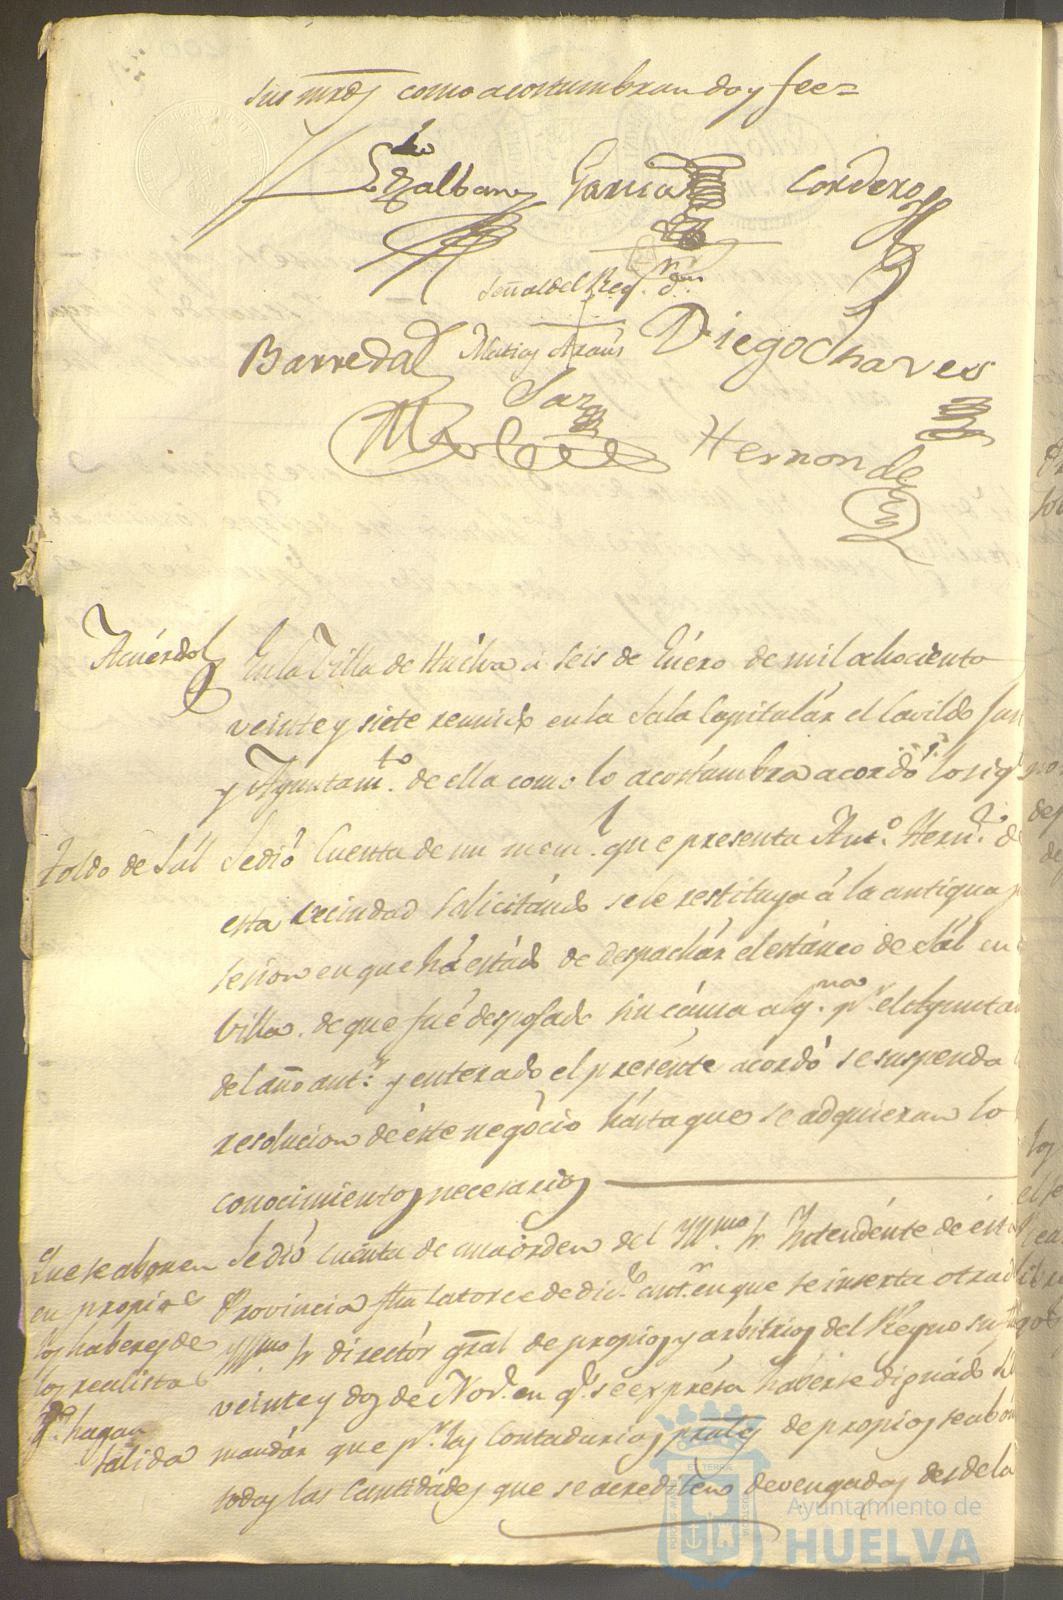 sus mrds como acostumbran doy fee=
Garcia Cordero
Señal del Regr. dn.
Barreda Matias Diego Chaves
Hernandez
Acuerdo En la Villa de Huelva á seis de Enero de mil ahociento
veinte y siete reunido en la Sala Capitulár el Cavildo
y Ayuntamto. de ella como lo acostumbra acordó lo sigte
toldo de Sál Se dió Cuenta de un meml. que presenta Anto. Hernz. de
esta vecindad solicitándo se le restituya á la antigua
sesion en que há estádo de despachár el estánco de Sál en
Villa. de que fué desposado sin cáusa algna. pr. el Ayunta
del año antr. y enterado el presénte acordó se suspenda
resolucion de éste negócio hásta que se adquieran lo
conocimientos necesarios
Que se abonen Se dió cuénta de una órden del Yllmo. Sr. Intendénte de ésta
en propios Provincia fha catorce de dice. antr. en que se inserta otra del
los haberes de Yllmo Sr. directór gral de propios y arbitrios del Reyno su fha
los realistas veinte y dos de Nove. en qe. se exprésa habérse dignádo
qe. hagan mandár que pr. las Contadurias prales de propios se abon
sálida todas las Cantidádes que se acrediten devengadas desde la
EL TERRAE
Ayuntamiento de
HUELVA